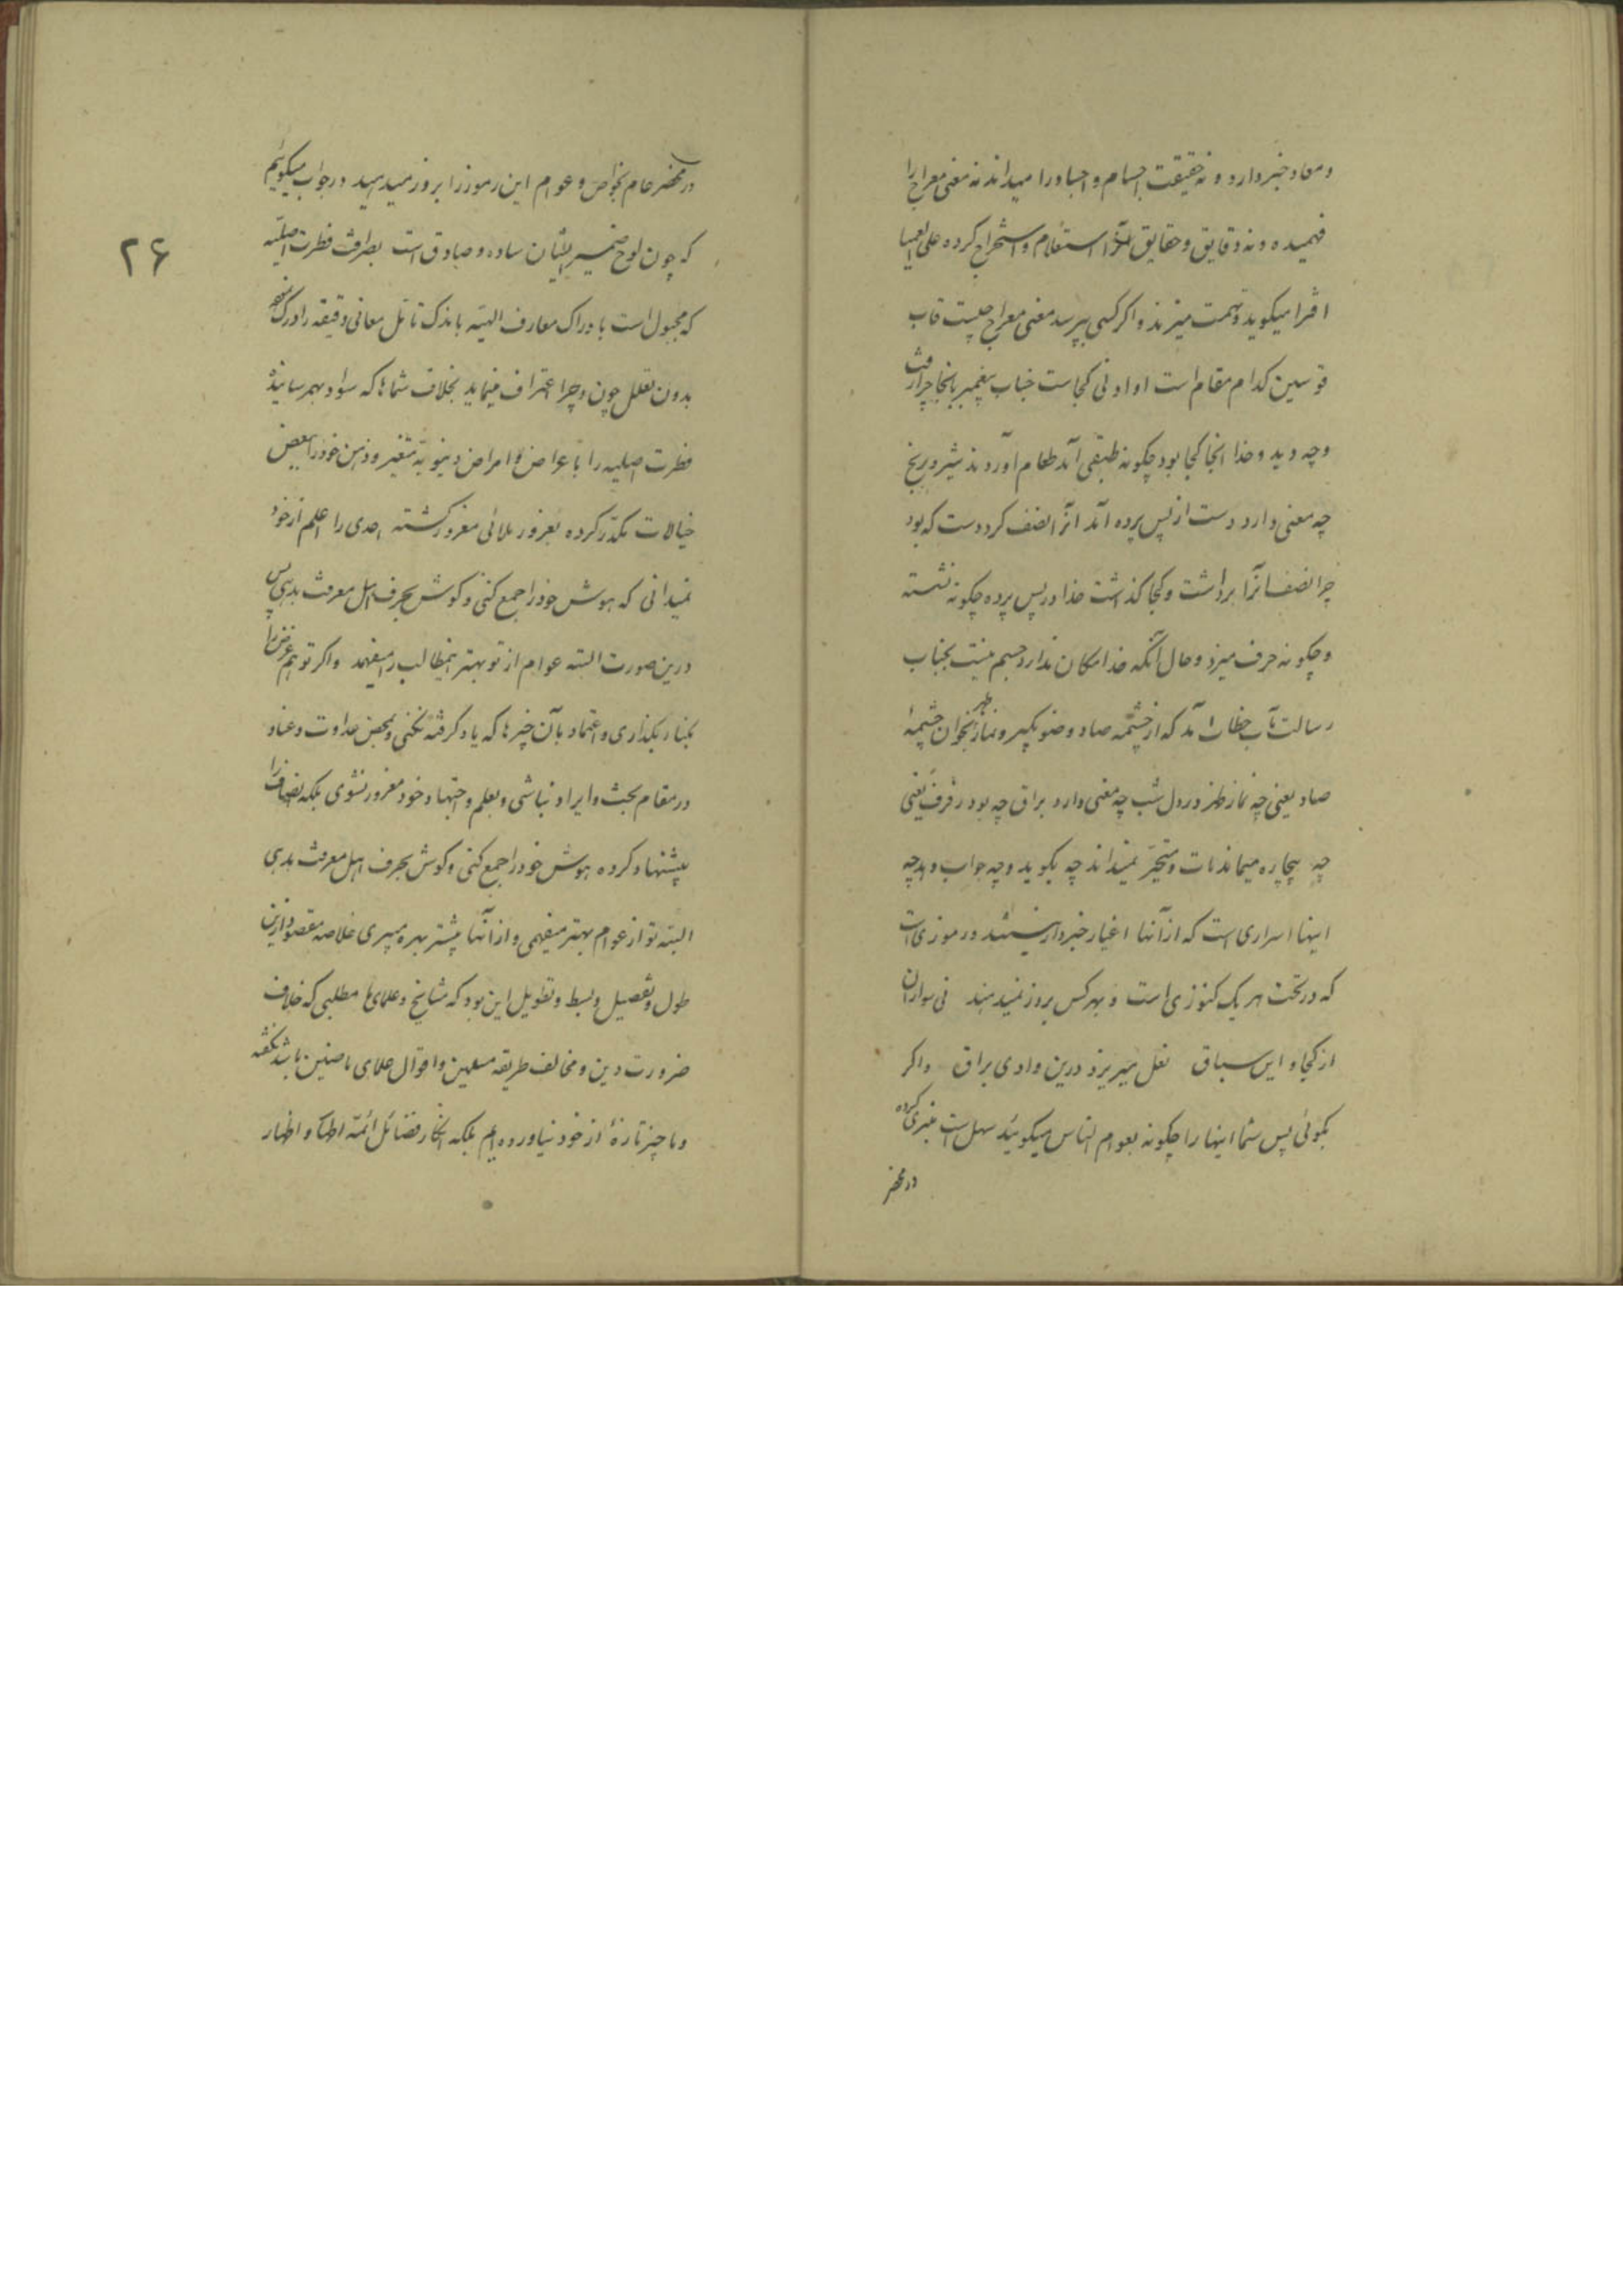 و معاد خبر دارد و نه حقیقت اجسام و اجساد را میداند نه معنی معراج را
فهمیده و نه دقایق و حقایق آنرا استعلام و استخراج کرده علی العمیا
افترا میگوید و تهمت میزند و اگر کسی بپرسد معنی معراج چیست قاب
قوسین کدام مقام است او ادنی کجاست جناب پیغمبر بانجا چرا رفت
و چه دید و خدا انجا کجا بود چگونه طبقی آمد طعام آوردند شیر و برنج
چه معنی دارد دست از پس پرده آمد انرا نصف کرد دست که بود
چرا نصف انرا برداشت و کجا گذاشت خدا در پس پرده چگونه نشسته
و چگونه حرف میزد و حال آنکه خدا مکان ندارد جسم نیست بجناب
رسالت مآب خطاب آمد که از چشمه صاد وضو بگیر و نماز ظهر بخوان چشمهٔ
صاد یعنی چه نماز ظهر در دل شب چه معنی دارد براق چه بود رفرف یعنی
چه بیچاره میماند مات و متحیر نمیداند چه بگوید و چه جواب دهد چه
اینها اسراری است که از آنها اغیار خبردار نیستند و رموزی است
که در تحت هر یک کنوزی است و بهر کس بروز نمیدهند نی سواران
از کجا و این سباق نعل میریزد درین وادی براق و اگر
بگوئی پس شما اینها را چگونه بعوام الناس میگوئید سهل است منبری کرده
در محضر
در محضر عام بخواص و عوام این رموز را بروز میدهید در جواب میگوئیم
۲۶
که چون لوح ضمیر ایشان ساده و صادق است بصرافت فطرت اصلیه
که مجبول است بادراک معارف الهیه باندک تأمل معانی دقیقه را درک نموده
بدون تعلل چون و چرا اعتراف مینماید بخلاف شماها که سواد بهمرسانیده
فطرت اصلیه را باعراض و امراض دنیویه متغیر و ذهن خود را ببعض
خیالات مکدر کرده بغرور ملائی مغرور گشته احدی را اعلم از خود
نمیدانی که هوش خود را جمع کنی و گوش بحرف اهل معرفت بدهی پس
درین صورت البته عوام از تو بهتر اینمطالب را میفهمد و اگر تو هم غرض را
بکنار بگذاری و اعتماد بآن چیزها که یاد گرفته نکنی و بمحض عداوت و عناد
در مقام بحث و ایراد نباشی و بعلم و اجتهاد خود مغرور نشوی بلکه انصاف را
پیشنهاد کرده هوش خود را جمع کنی و گوش بحرف اهل معرفت بدهی
البته تو از عوام بهتر میفهمی و از آنها بیشتر بهره میبری خلاصه مقصود ازین
طول و تفصیل و بسط و تطویل این بود که مشایخ و علمای ما مطلبی که خلاف
ضرورت دین و مخالف طریقه مسلمین و اقوال علمای ماضین باشد نگفته
و ما چیز تازهٔ از خود نیاورده ایم بلکه انکار فضائل ائمه اطهار و اظهار